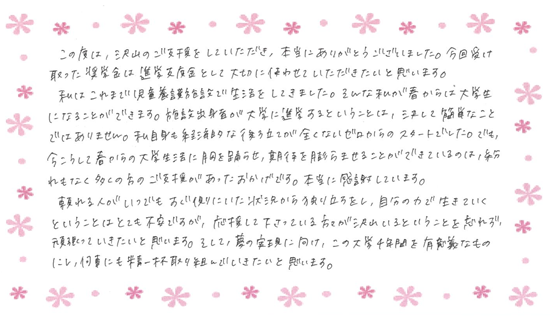 この度は、沢山のご支援をしていただき、本当にありがとうございました。今回受け
取った奨学金は進学支度金として大切に使わせていただきたいと思います。
私はこれまで児童養護施設で生活をしてきました。そんな私が春からは大学生
になることができます。施設出身者が大学に進学するということは、決して簡単なこと
ではありません。私自身も経済的な後ろ立てが全くないゼロからのスタートでした。でも、
今こうして春からの大学生活に胸を踊らせ、期待を膨らませることができているのは、紛
れもなく多くの方のご支援があったおかげです。本当に感謝しています。
頼れる人がいつでもすぐ側にいた状況から独り立ちをし、自分の力で生きていく
ということはとても不安ですが、応援して下さっている方々が沢山いるということを忘れず、
頑張っていきたいと思います。そして、夢の実現に向け、この大学4年間を有意義なもの
にし、何事にも精一杯取り組んでいきたいと思います。